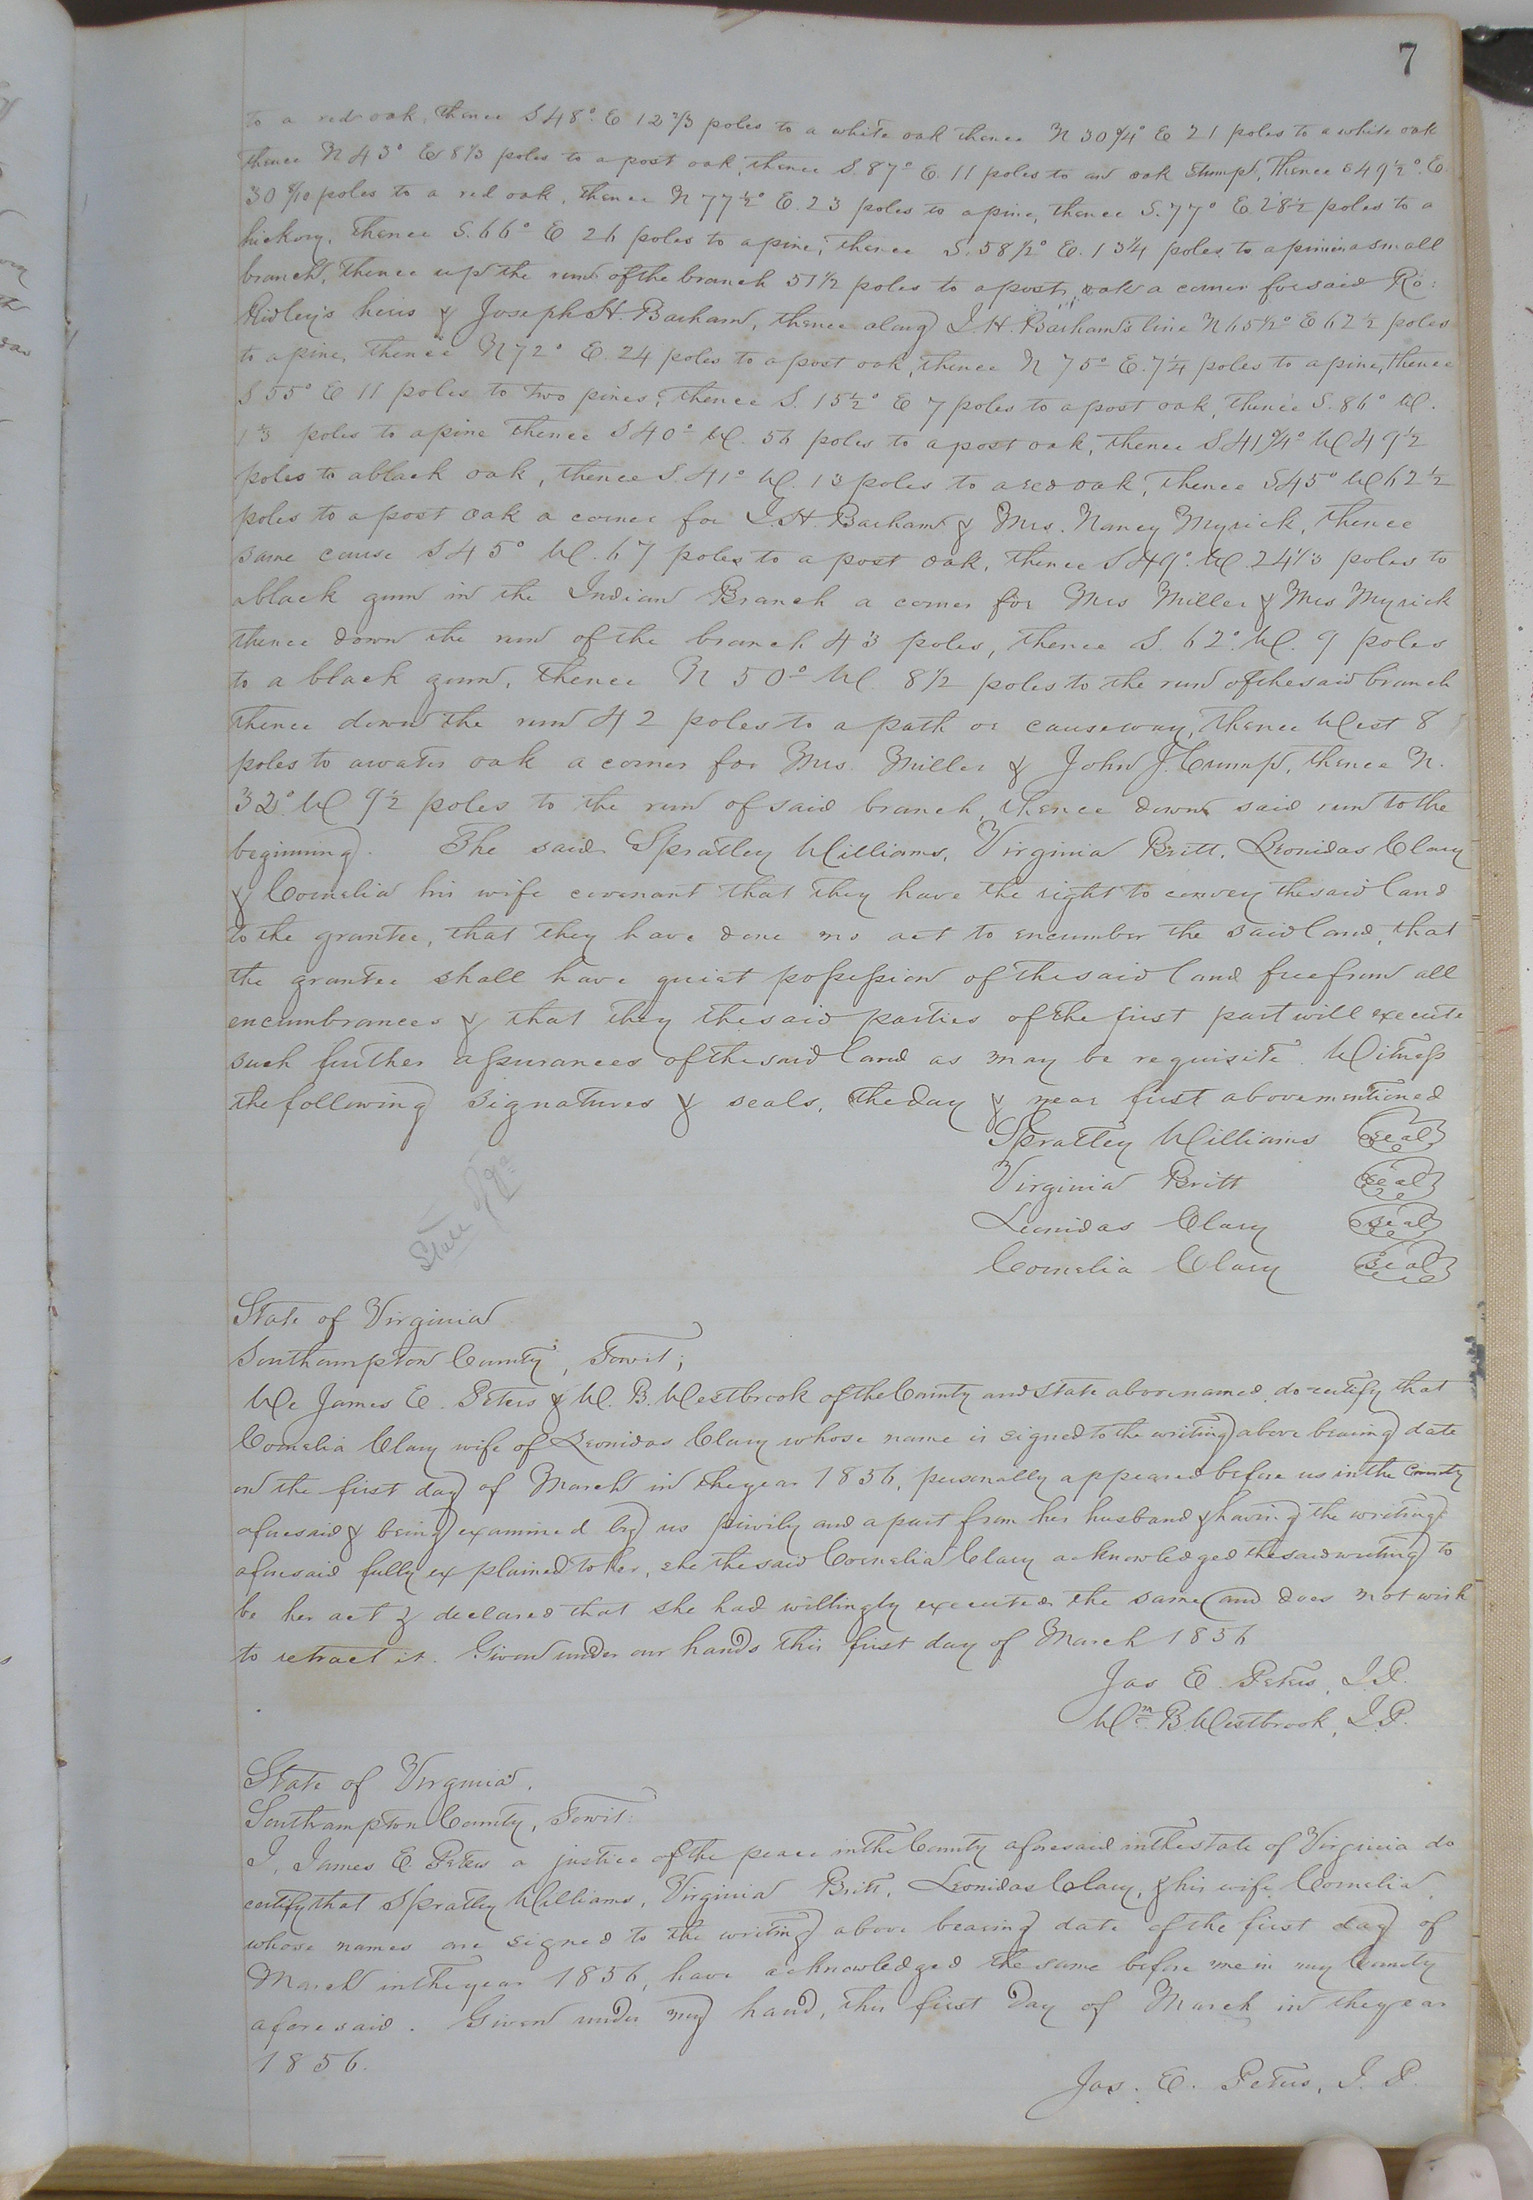 7
to a red oak, thence S 48° E 12 2/3 poles to a white oak thence N 30 3/4° E 21 poles to a white oak
thence N 43° E 8 1/3 poles to a post oak, thence S. 87° E. 11 poles to an oak stump, thence S 49 1/2° E.
30 poles to a red oak, thence N 77 1/2° E. 23 poles to a pine, thence S. 77° E. 28 1/2 poles to a
hickory, thence S. 66° E 26 poles to a pine, thence S. 58 1/2° E. 13 1/4 poles to a pine in a small
branch, thence up the run of the branch 51 1/2 poles to a post oak a corner for said Ro:
Ridley's heirs & Joseph H. Barham, thence along J. H. Barham's line N 65 1/2° E 62 1/2 poles
to a pine, thence N 72° E. 24 poles to a post oak, thence N 75° E. 7 1/4 poles to a pine, thence
S 55° E 11 poles to two pines, thence S. 15 1/2° E 7 poles to a post oak, thence S. 86° W.
13 poles to a pine thence S 40° W. 56 poles to a post oak, thence S 41 3/4° W 49 1/2
poles to a black oak, thence S. 41° W. 13 poles to a red oak, thence S 45° W 62 1/2
poles to a post oak a corner for J. H. Barham & Mrs. Nancy Myrick, thence
same cause S 45° W. 67 poles to a post oak, thence S 49° W. 24 1/3 poles to
a black gum in the Indian Branch a corner for Mrs Miller & Mrs Myrick
thence down the run of the branch 43 poles, thence S. 62° W. 9 poles
to a black gum, thence N 50° W. 8 1/2 poles to the run of the said branch
thence down the run 42 poles to a path or causeway, thence West 8
poles to a water oak a corner for Mrs. Miller & John J. Crump, thence N.
32° W 9 1/2 poles to the run of said branch, thence down said run to the
beginning. The said Spratley Williams, Virginia Britt, Leonidas Clary
& Cornelia his wife covenant that they have the right to convey the said land
to the grantee, that they have done no act to encumber the said land, that
the grantee shall have quiet possession of the said land free from all
encumbrances & that they the said parties of the first part will execute
such further assurances of the said land as may be requisite. Witness
the following signatures & seals, the day & year first above mentioned
Spratley Williams Seal
Virginia Britt Seal
Leonidas Clary Seal
Cornelia Clary Seal
State of Va
State of Virginia
Southampton County, Towit;
We James E. Peters & W. B. Westbrook of the County and State above named do certify that
Cornelia Clary wife of Leonidas Clary whose name is signed to the writing above bearing date
on the first day of March in the year 1856, personally appeared before us in the County
aforesaid & being examined by us privily and apart from her husband & having the writing
aforesaid fully explained to her, she the said Cornelia Clary acknowledged the said writing to
be her act & declared that she had willingly executed the same and does not wish
to retract it. Given under our hands this first day of March 1856
Jas E. Peters, J.P.
Wm B. Westbrook, J.P.
State of Virginia.
Southampton County, Towit:
I, James E. Peters a justice of the peace in the County aforesaid in the state of Virginia do
certify that Spratley Williams, Virginia Britt, Leonidas Clary, & his wife Cornelia,
whose names are signed to the writing above bearing date of the first day of
March in the year 1856, have acknowledged the same before me in my County
aforesaid. Given under my hand, this first day of March in the year
1856.
Jas. E. Peters, J. P.